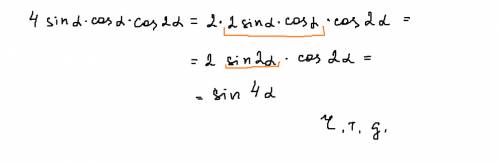 4 sinα·cosα·cos2α = 2·2sinα·cosα·cos2α =
= 2 sin2α · cos2α =
= sin 4α
Ч.т.д.